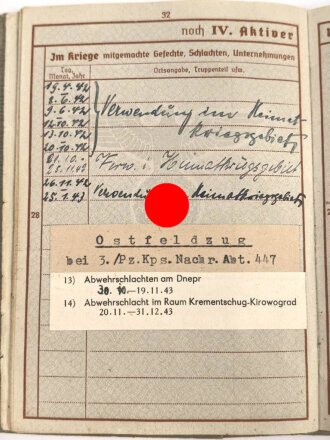 32
noch IV. Aktiver
Im Kriege mitgemachte Gefechte, Schlachten, Unternehmungen
Tag, Monat, Jahr
Ortsangabe, Truppenteil usw.
19.4.42
8.6.42
9.6.42
12.10.42
13.10.42
20.10.42
Verwendung im Heimat-
kriegsgebiet
21.10.-
25.11.42
Verw. i. Heimatkriegsgebiet
26.11.42
25.1.43
Verwendung Heimatkriegsgebiet
28
Ostfeldzug
bei 3./Pz.Kps.Nachr.Abt. 447
13) Abwehrschlachten am Dnepr
30.10.-19.11.43
14) Abwehrschlacht im Raum Krementschug-Kirowograd
20.11.-31.12.43